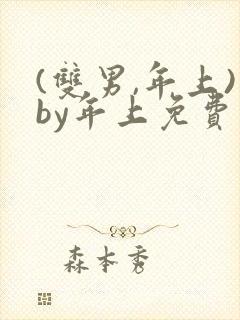 (雙男,年上)
by年上免費
森本秀